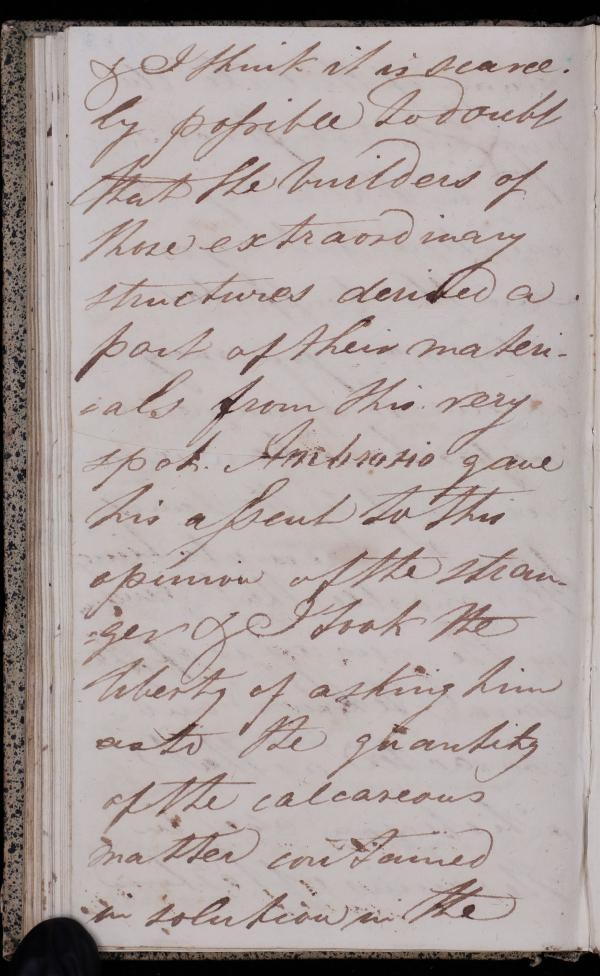 & I think it is scarce-
ly possible to doubt
that the builders of
those extraordinary
structures derived a
part of their materi-
ials from this very
spot. Ambrosio gave
his assent to this
opinion of the stran-
-ger & I took the
liberty of asking him
as to the quantity
of the calcareous
matter contained
in solution in the